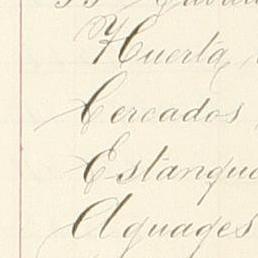 Huerta
Cercados
Estanque
Aguages